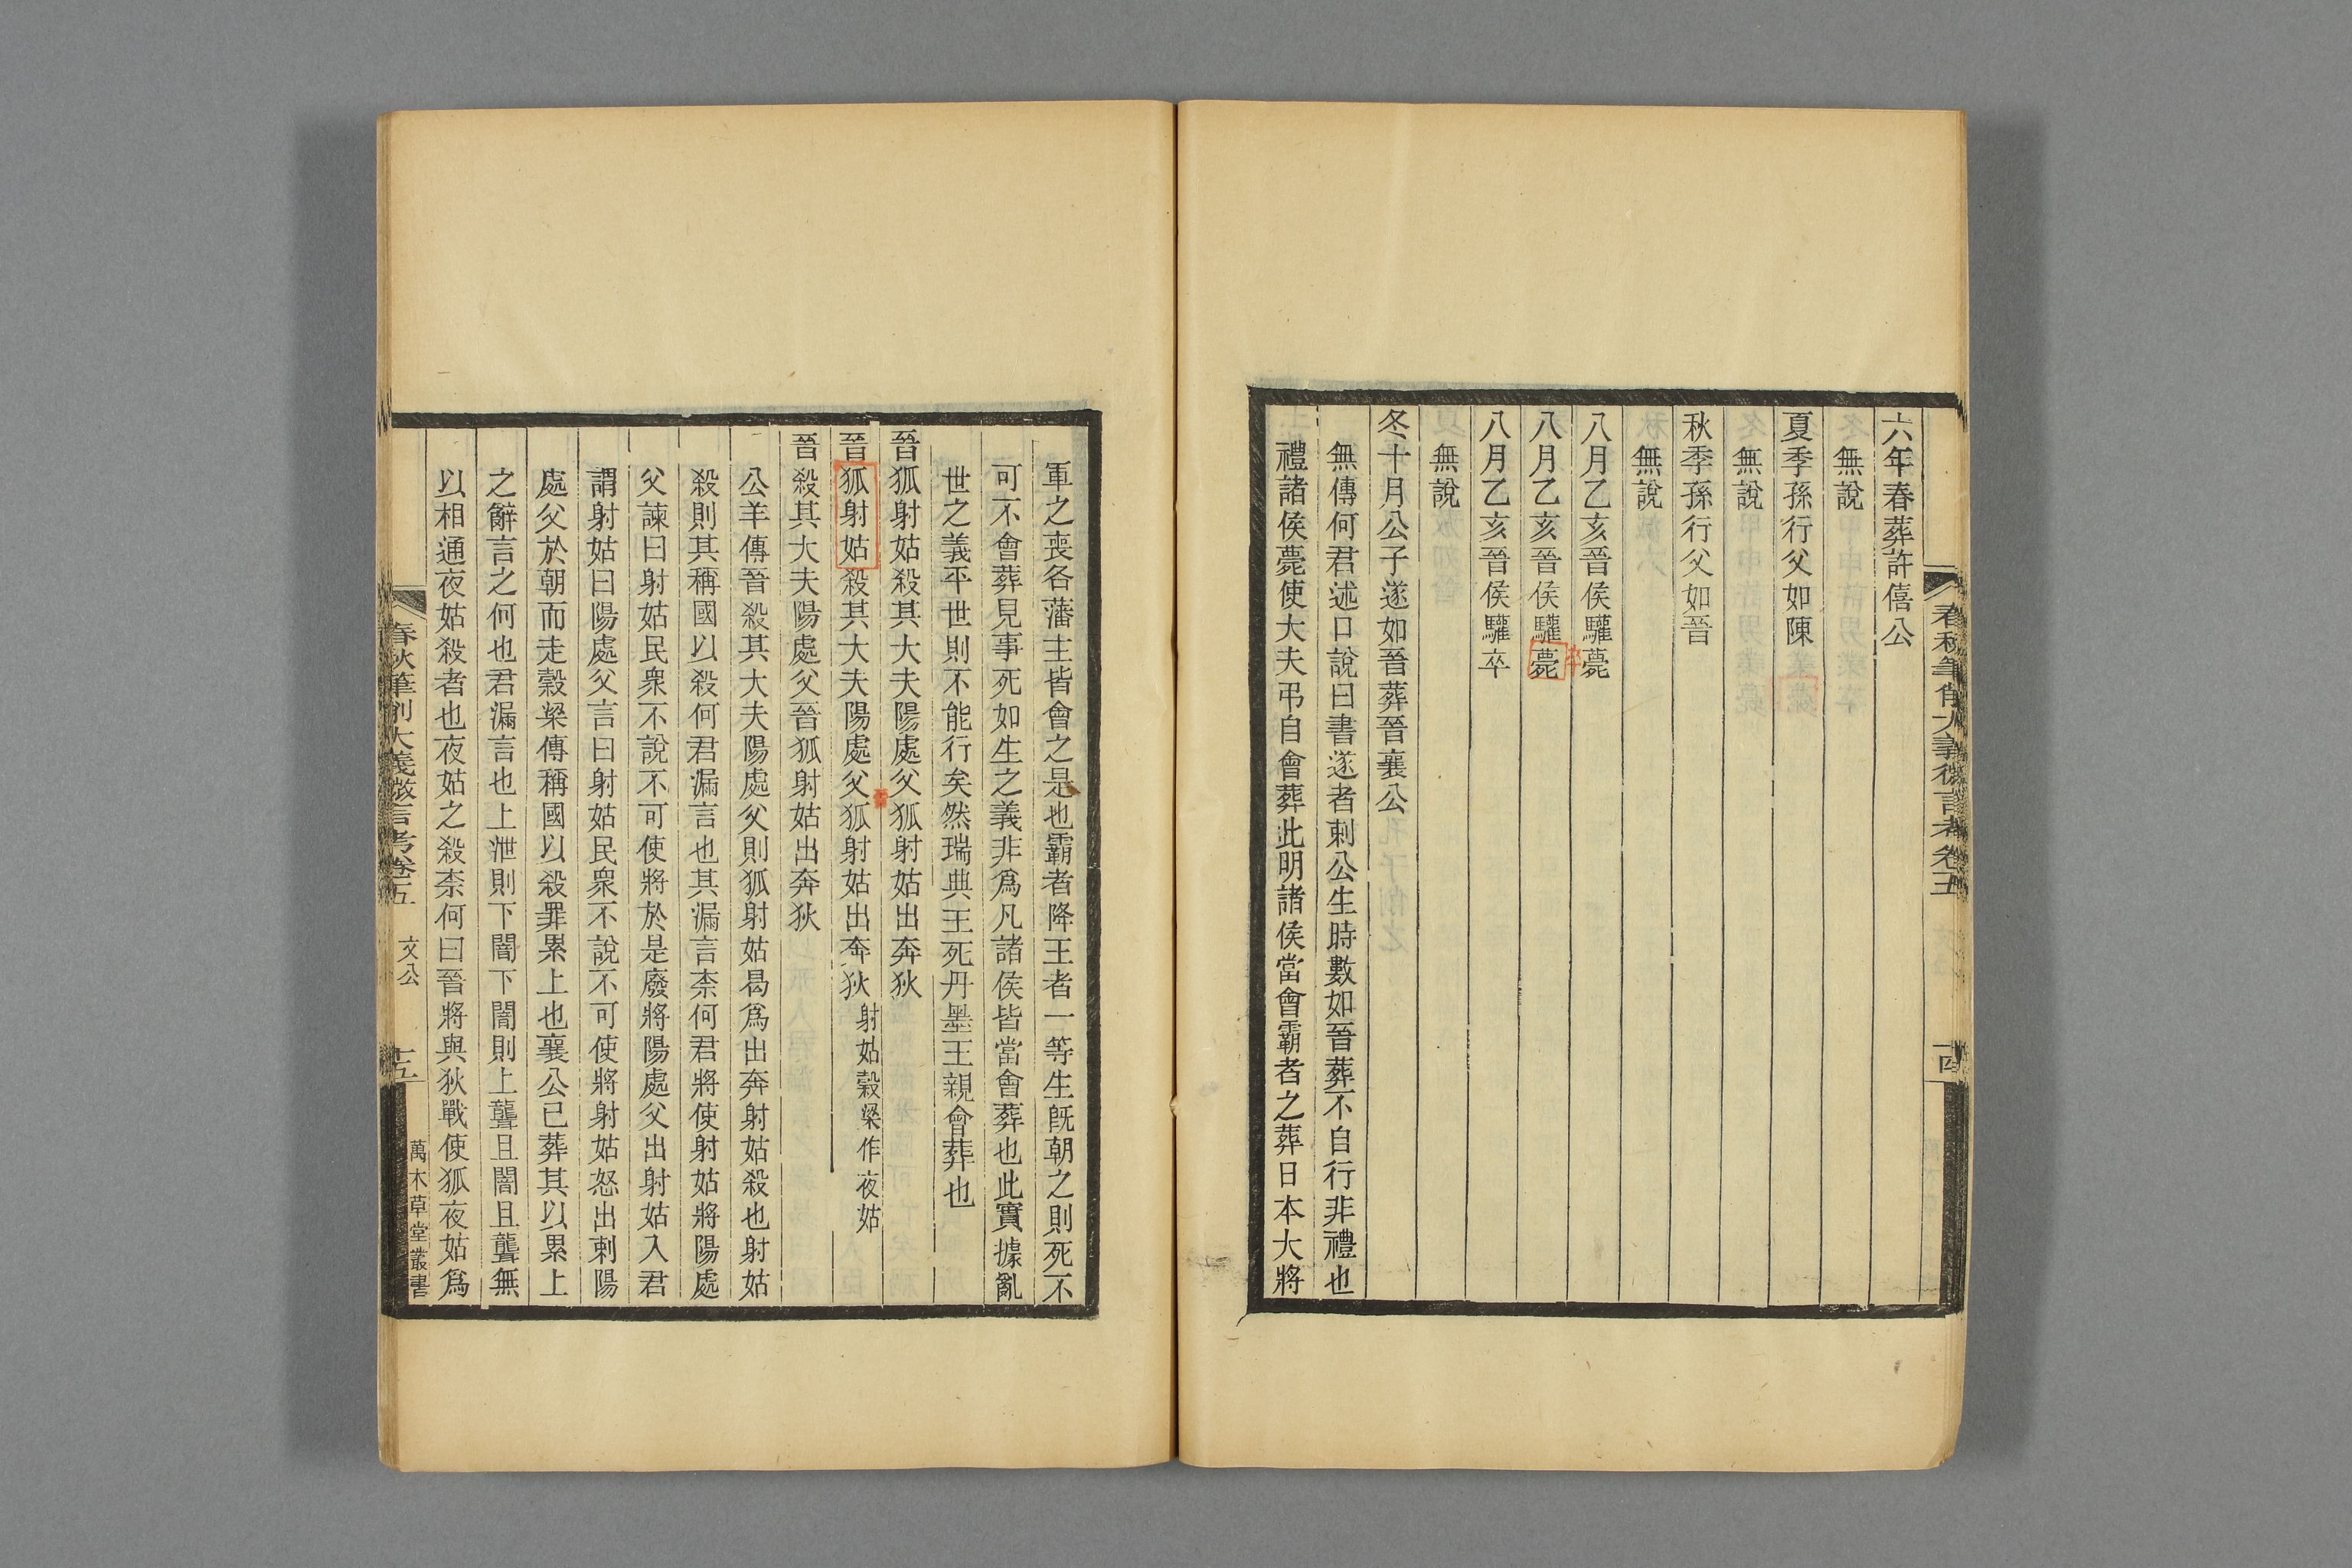 六年春葬許僖公
無說
夏季孫行父如陳
無說
秋季孫行父如晉
無說
八月乙亥晉侯驩薨
八月乙亥晉侯驩薨
卒
八月乙亥晉侯驩卒
無說
冬十月公子遂如晉葬晉襄公
無傳何君述口說曰書遂者刺公生時數如晉葬不自行非禮也
禮諸侯薨使大夫弔自會葬此明諸侯當會霸者之葬日本大將
春秋筆削大義微言考卷五
十四
軍之喪各藩主皆會之是也霸者降王者一等生旣朝之則死不
可不會葬見事死如生之義非爲凡諸侯皆當會葬也此實據亂
世之義平世則不能行矣然瑞典王死丹墨王親會葬也
晉狐射姑殺其大夫陽處父狐射姑出奔狄
晉狐射姑殺其大夫陽處父狐射姑出奔狄 射姑穀梁作夜姑
晉
晉殺其大夫陽處父晉狐射姑出奔狄
公羊傳晉殺其大夫陽處父則狐射姑曷爲出奔射姑殺也射姑
殺則其稱國以殺何君漏言也其漏言柰何君將使射姑將陽處
父諫曰射姑民衆不說不可使將於是廢將陽處父出射姑入君
謂射姑曰陽處父言曰射姑民衆不說不可使將射姑怒出刺陽
處父於朝而走穀梁傳稱國以殺罪累上也襄公已葬其以累上
之辭言之何也君漏言也上泄則下闇下闇則上聾且闇且聾無
以相通夜姑殺者也夜姑之殺柰何曰晉將與狄戰使狐夜姑爲
春秋筆削大義微言考卷五
文公
十五
萬木草堂叢書